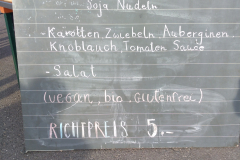 Soja Nudeln
- Karotten Zwiebeln Auberginen
Knoblauch, Tomaten Sauce
- Salat
(vegan, bio, Glutenfrei)
RICHTPREIS 5.-